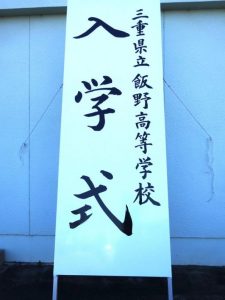 三重県立飯野高等学校
入学式